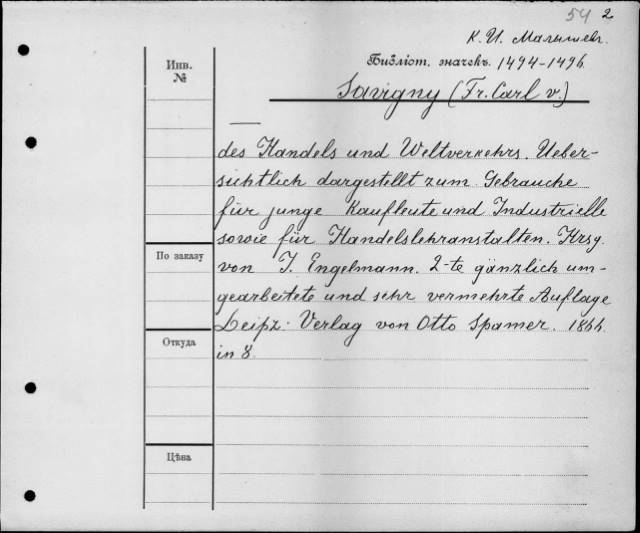 54 2
К. И. Малышев.
Библіот. значекъ. 1494-1496.
Savigny (Fr. Carl v.)
Инв.
№
des Handels und Weltverkehrs. Ueber-
sichtlich dargestellt zum Gebrauche
für junge Kaufleute und Industrielle
sowie für Handelslehranstalten. Hrsg.
По заказу
von J. Engelmann. 2-te gänzlich um-
gearbeitete und sehr vermehrte Auflage
Leipz. Verlag von Otto Spamer. 1866.
Откуда
in 8.
Цѣна